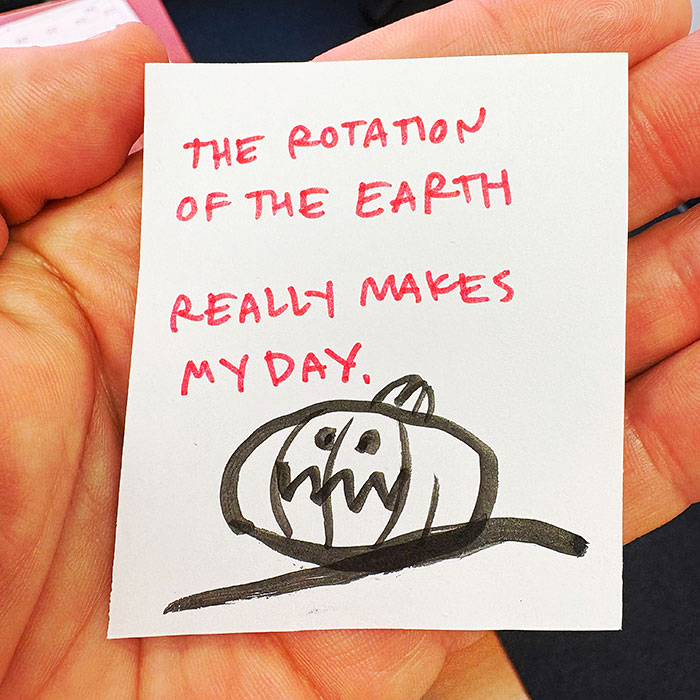 THE ROTATION
OF THE EARTH
REALLY MAKES
MY DAY.